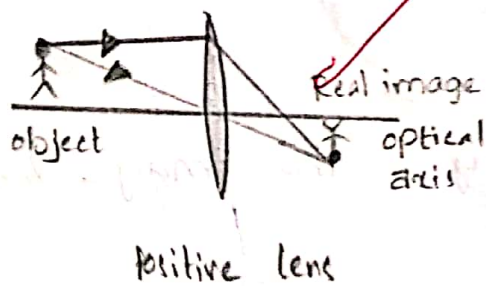 Real image
object
optical
axis
Positive lens